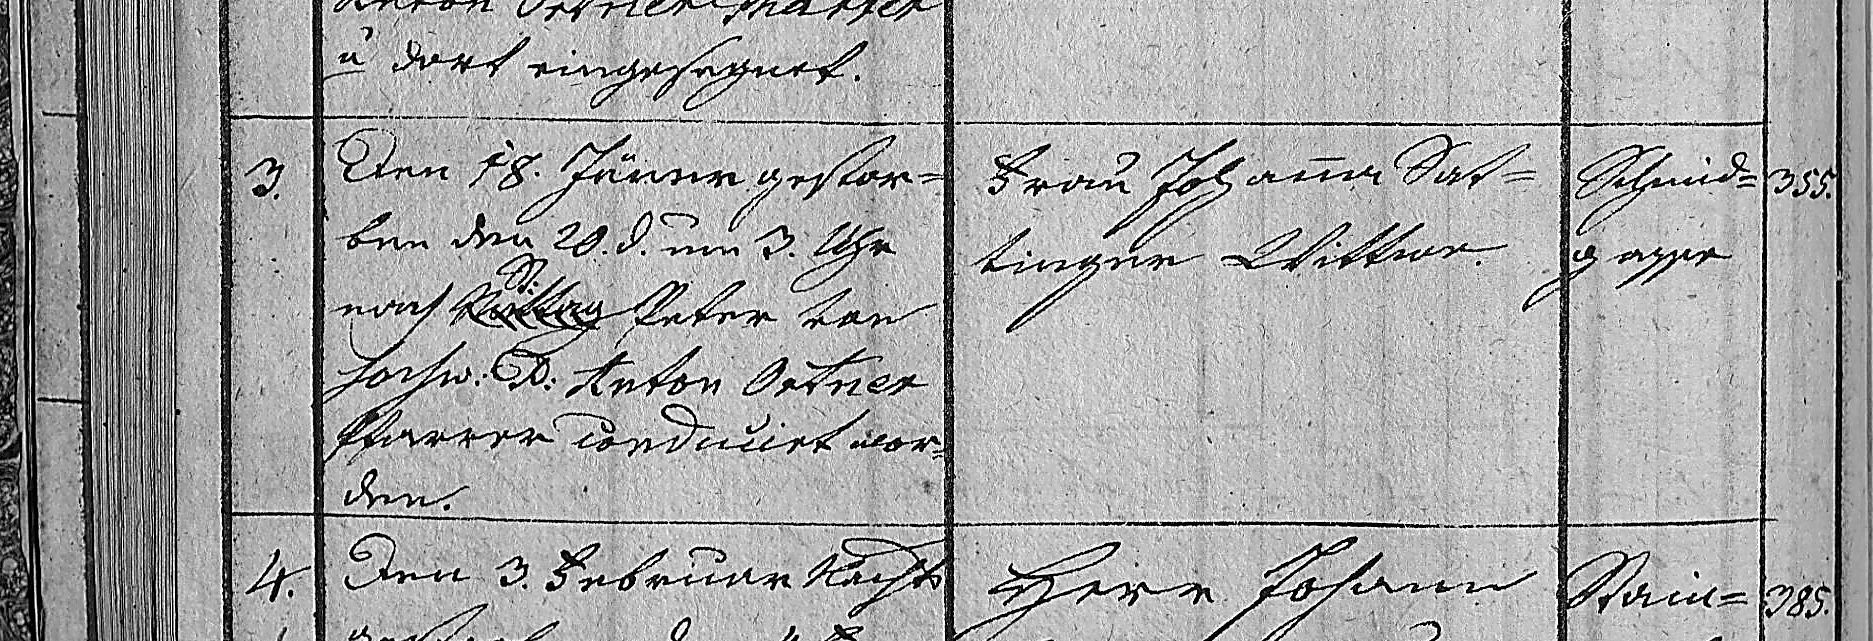 Anton Ortner Pfarrer
u dort eingesegnet.
3. Den 18. Jäner gestor=
ben den 20. d. um 3. Uhr
nach St: Peter von
hochw: D: Anton Ortner
Pfarrer conduciret wor=
den.
Frau Johanna Sat=
tinger Wittwe.
Schmid=
gasse
355.
4. Den 3. Februar Nachts
Herr Johann
Stain=
385.